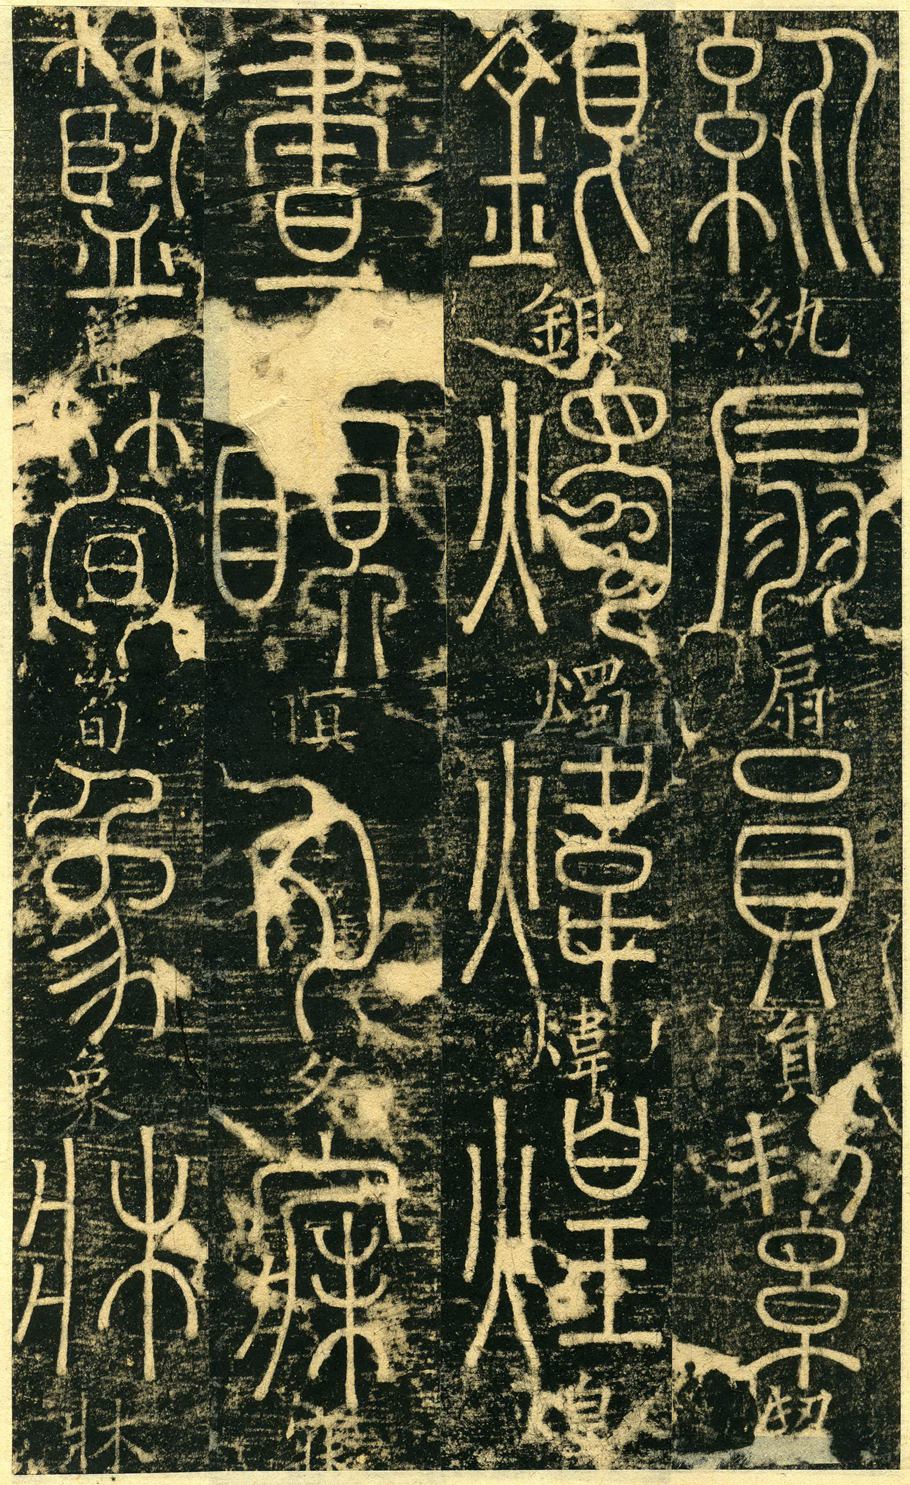 紈紈扇扇員員絜絜
銀銀燭燭煒煒煌煌
晝瞑瞑夕夕寐寐
籃筍筍象象牀牀